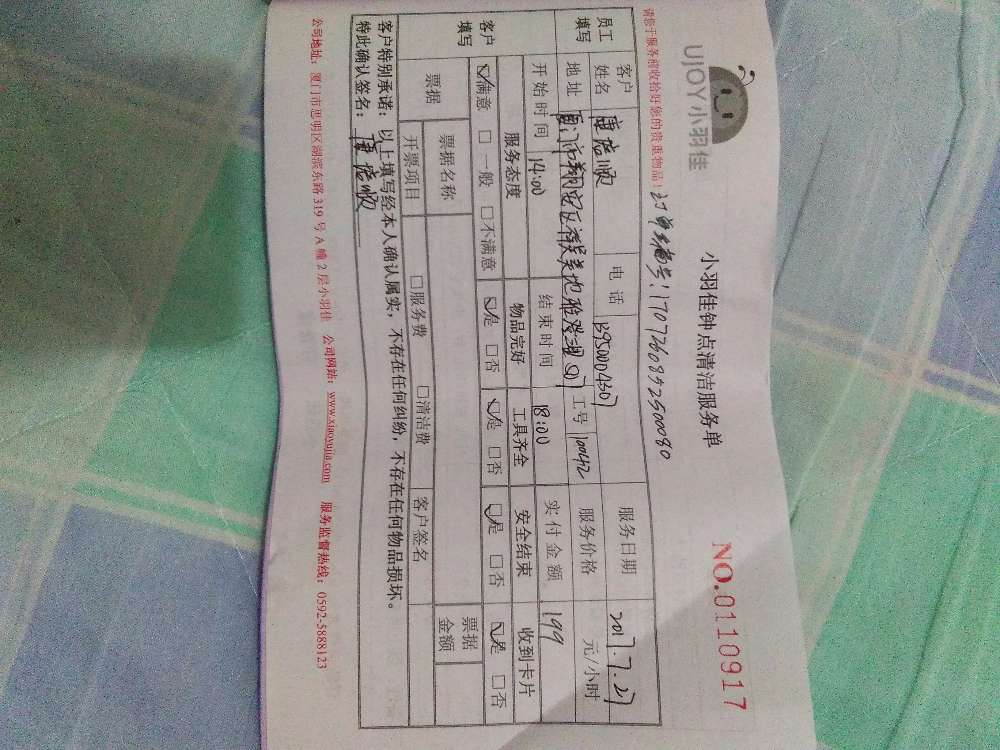 UJOY小羽佳
小羽佳钟点清洁服务单
NO.0110917
请您于服务前收拾好您的贵重物品!
订单编号:170726085250080
员工填写
客户姓名 电话 服务日期 2017.7.27
地址 厦门市翔安区 工号 10042 服务价格 元/小时
开始时间 14:00 结束时间 18:00 实付金额 199
客户填写
服务态度 物品完好 工具齐全 安全结束 收到卡片
☑满意 □一般 □不满意 ☑是 □否 ☑是 □否 ☑是 □否 ☑是 □否
票据 票据名称 票据金额
开票项目 □服务费 □清洁费 客户签名
客户特别承诺:以上填写经本人确认属实,不存在任何纠纷,不存在任何物品损坏。
特此确认签名:
公司地址:厦门市思明区湖滨东路319号A幢2层小羽佳 公司网站:www.xiaoyujia.com 服务监督热线:0592-5888123